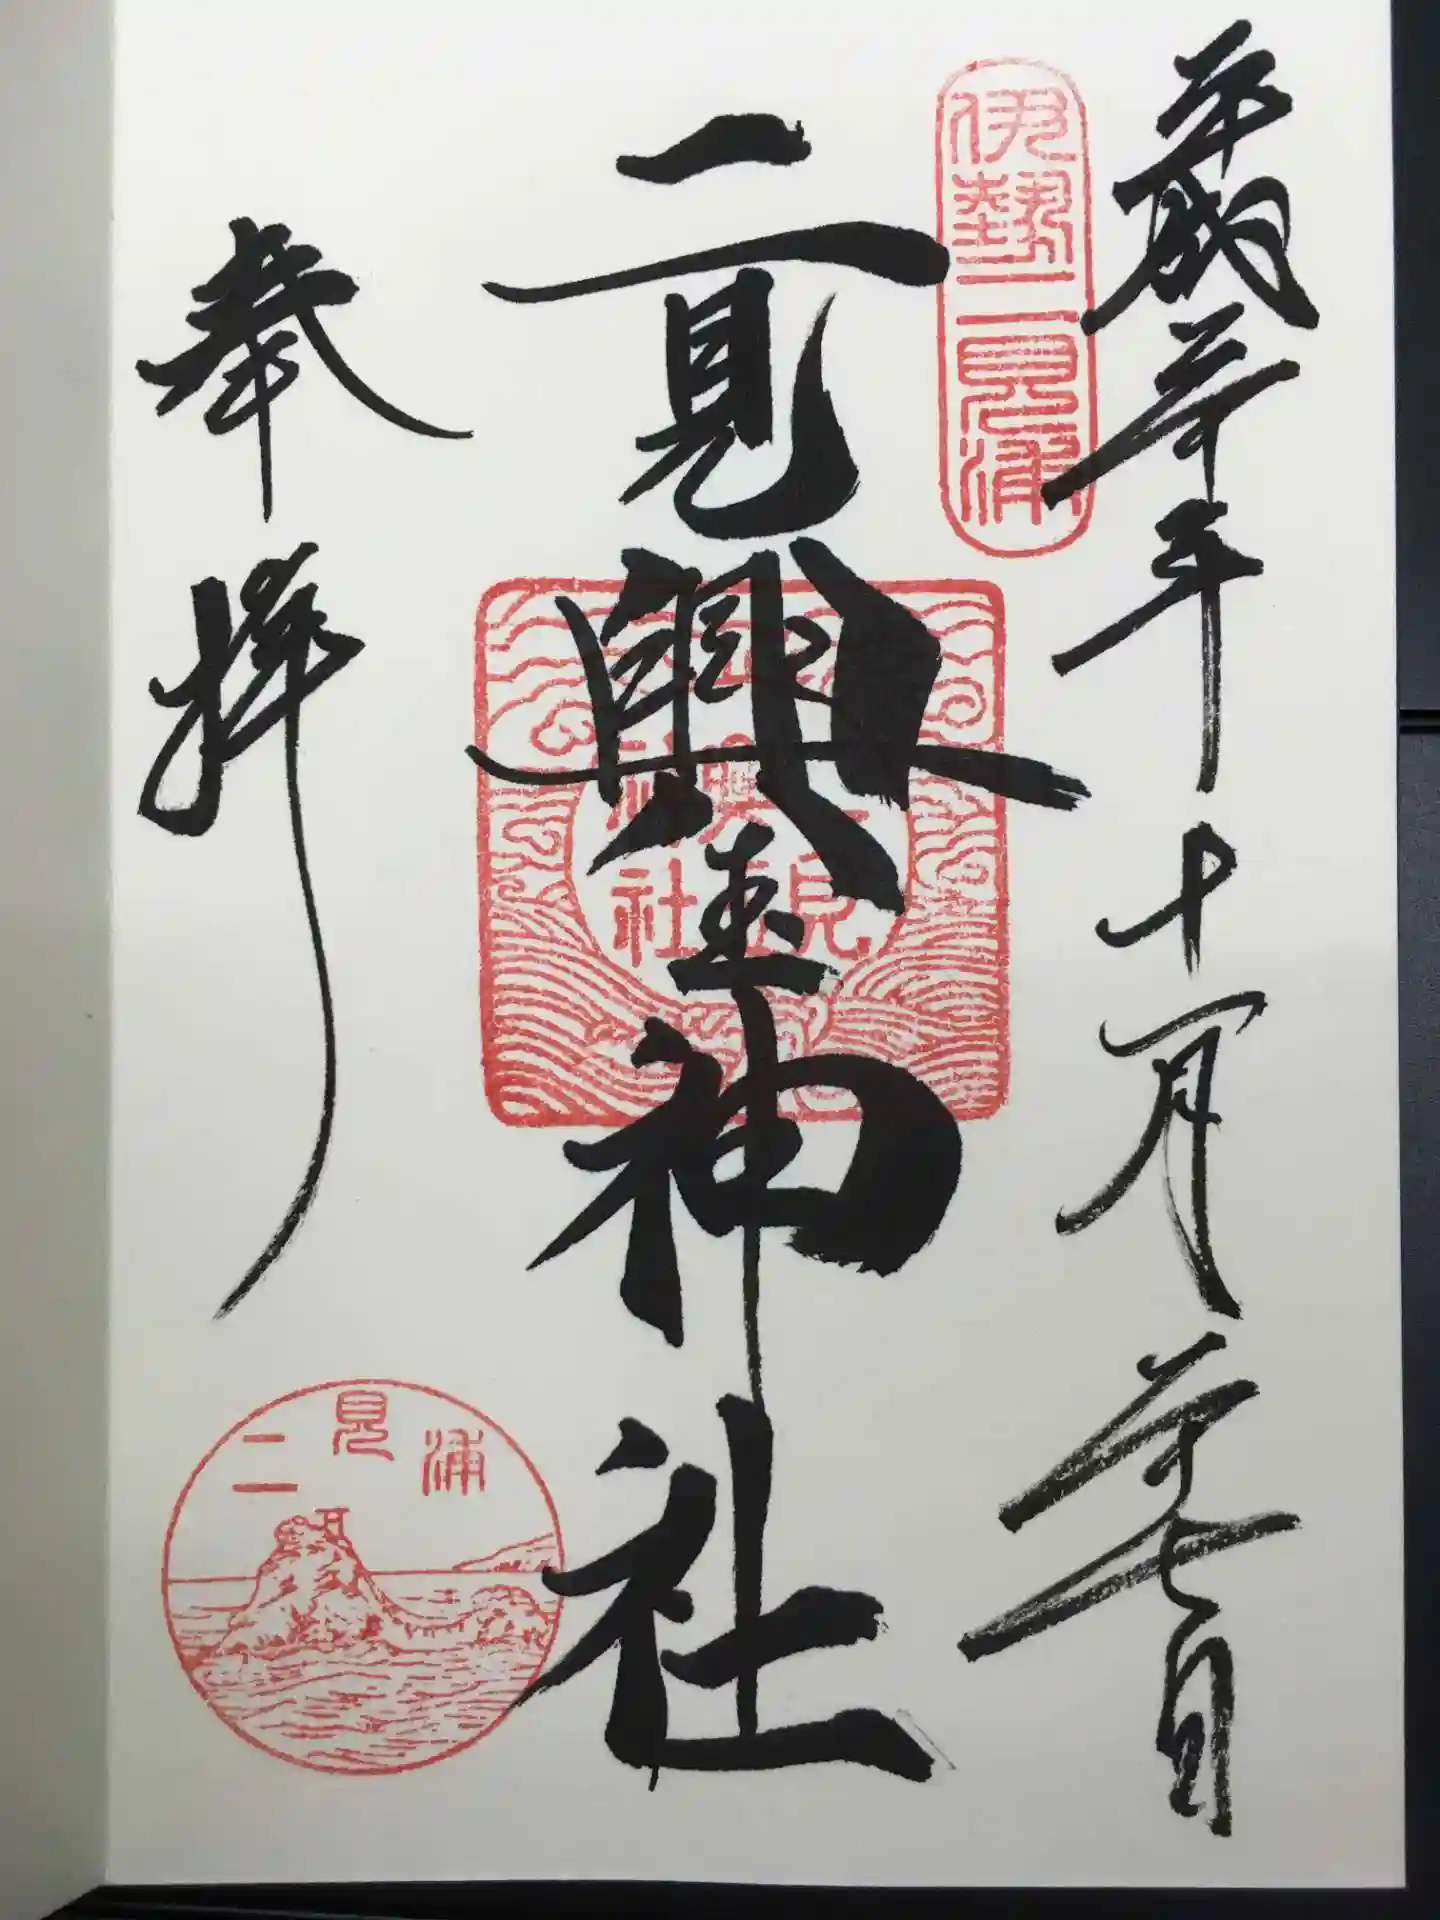 平成三十年十月二十七日
伊勢二見浦
二見興玉神社
二見興玉神社
奉拝
二見浦